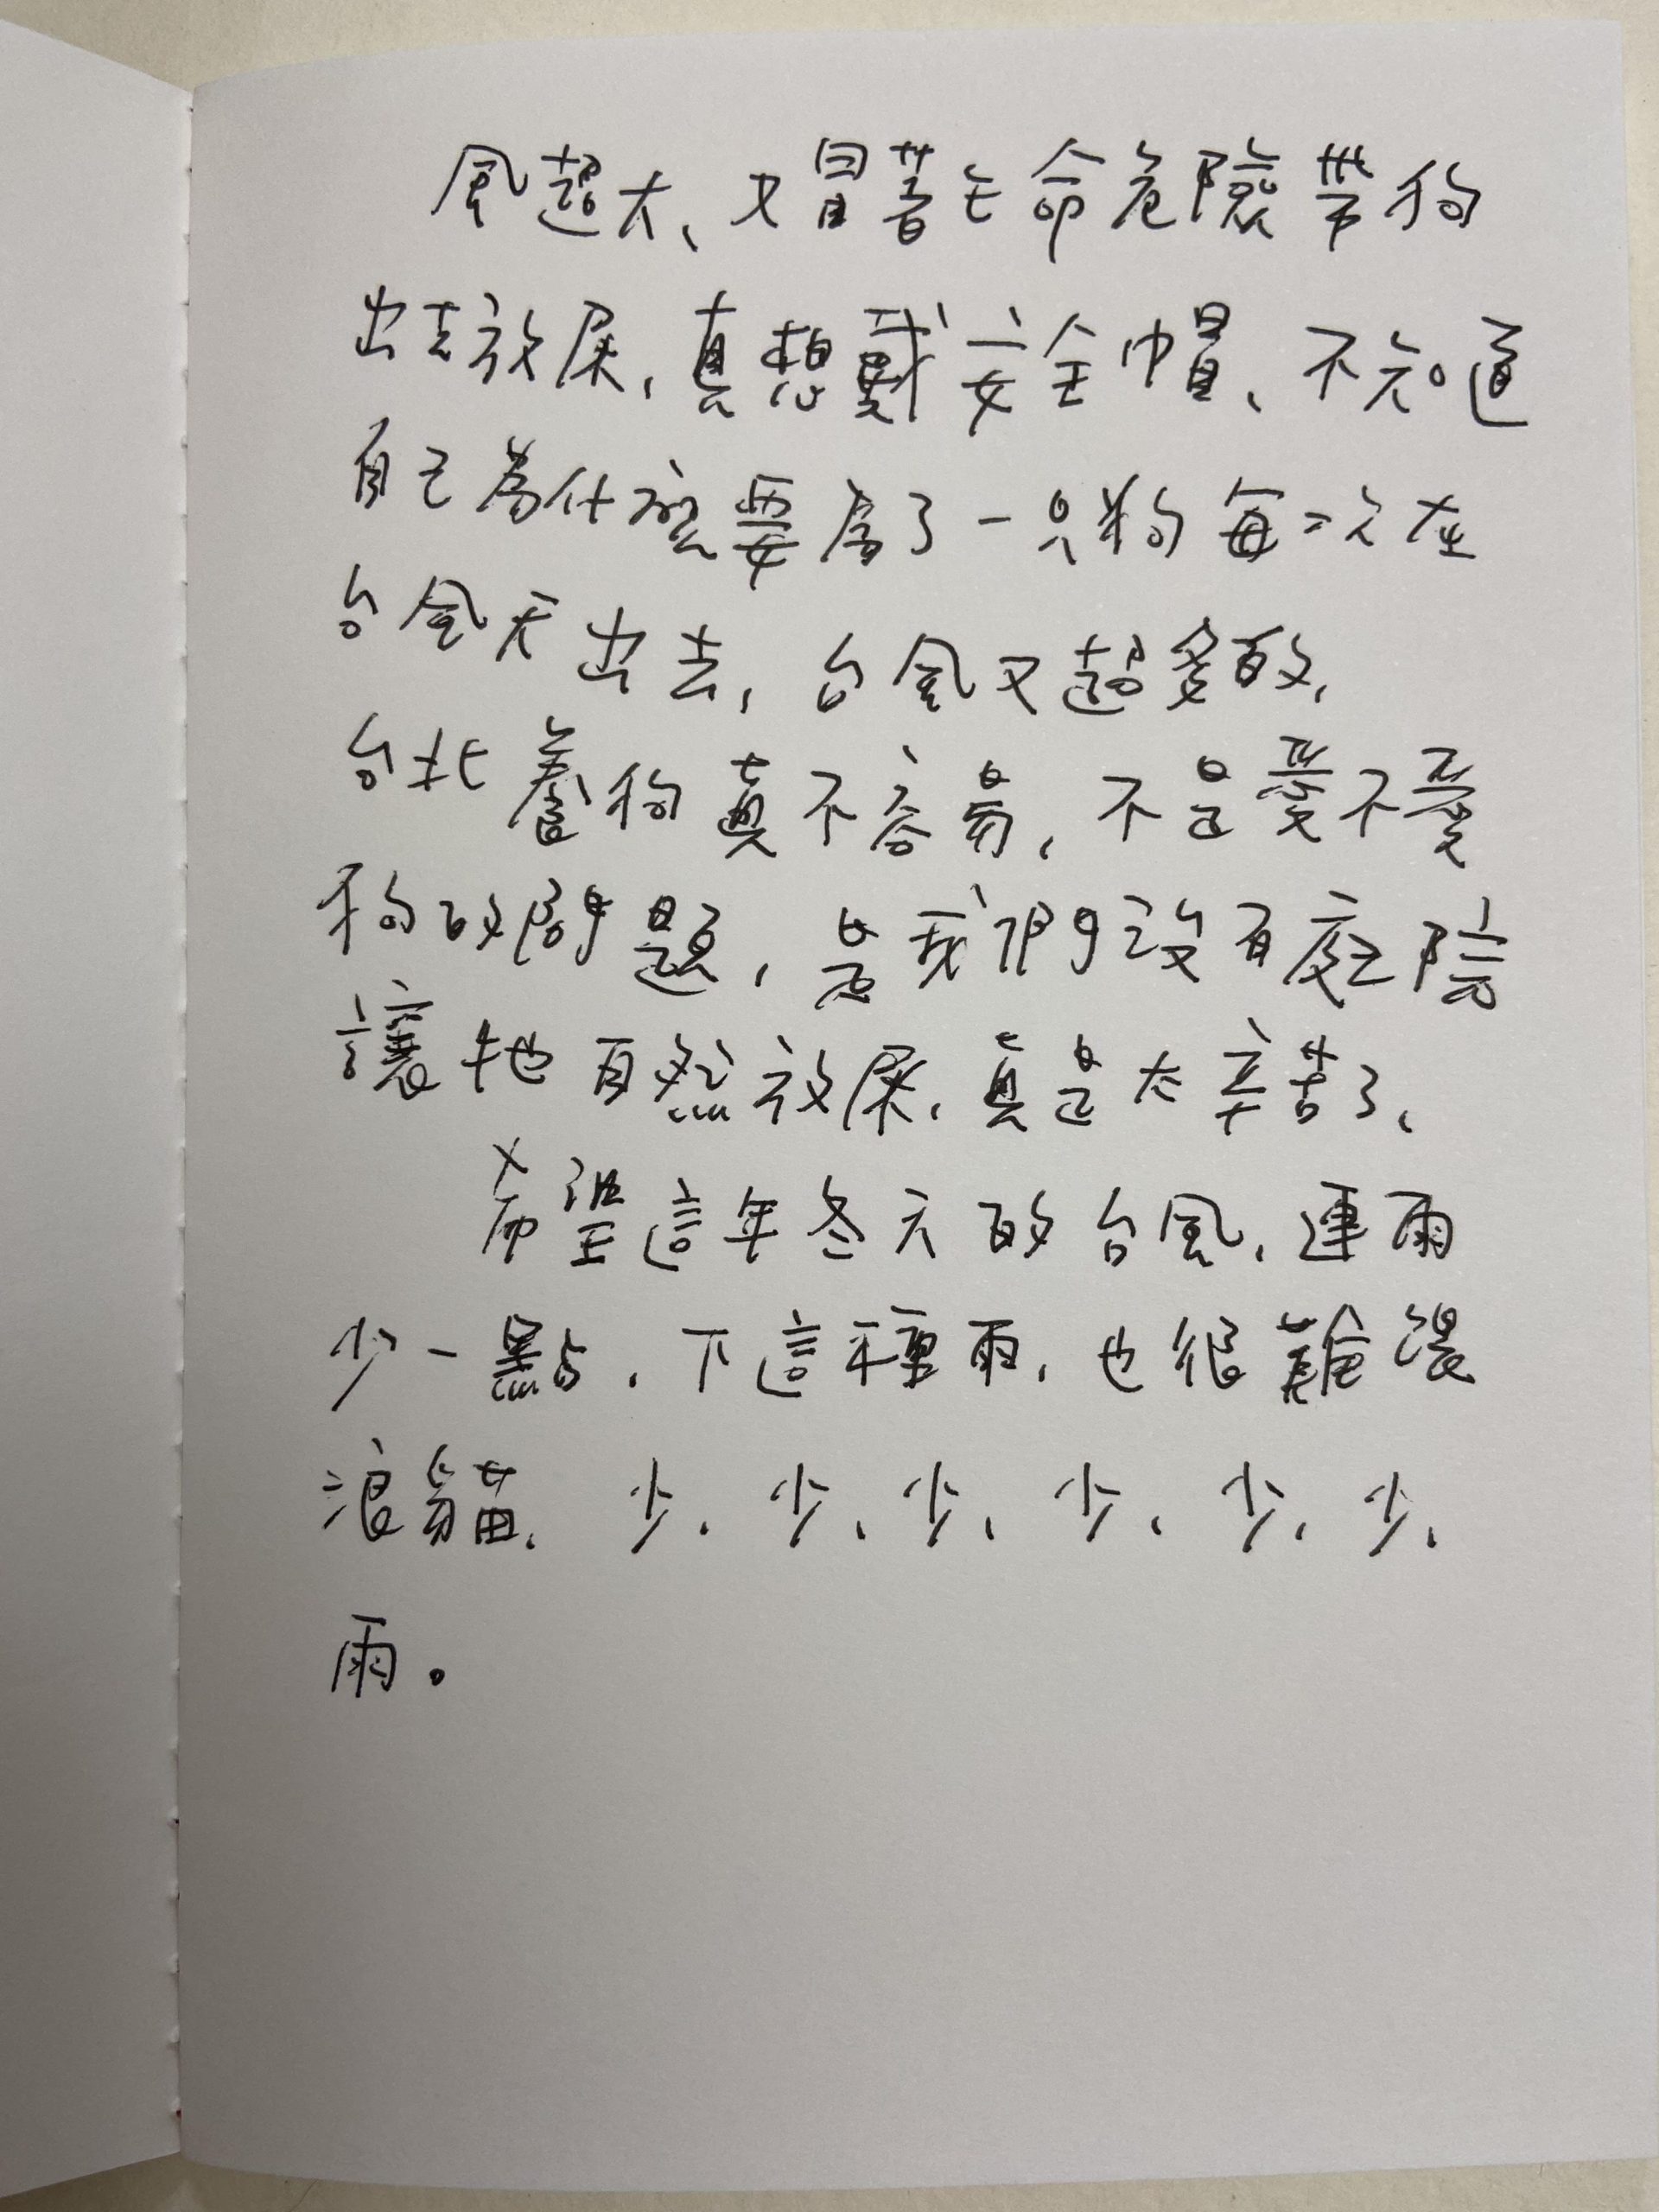 風超大、又冒著生命危險帶狗
出去放尿，真想戴安全帽、不知道
自己為什麼要為了一只狗每次在
台風天出去，台風又超多的，
台北養狗真不容易，不是愛不愛
狗的問題，是我們沒有庭院
讓牠自然放尿，真是太辛苦了、
希望這年冬天的台風，連雨
少一點，下這種雨，也很難混
浪貓、少、少、少、少、少、少、
雨。